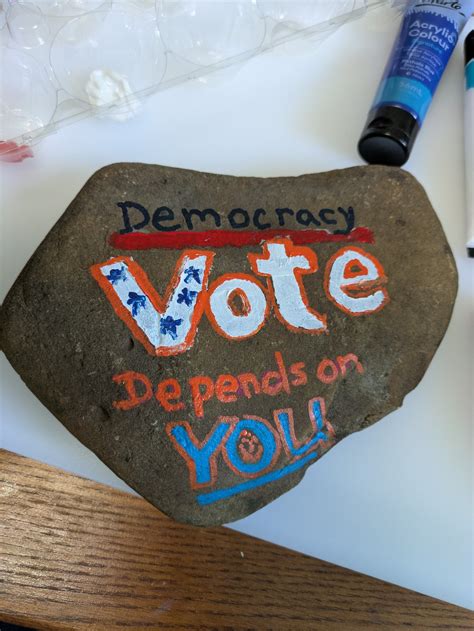 Acrylic
Colour
Democracy
Vote
Depends on
YOU